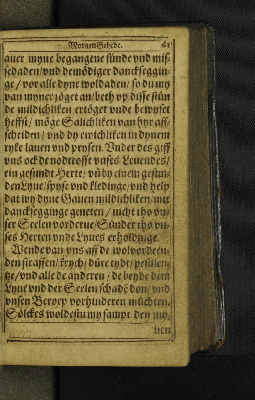 MorgenGebedt. 61
auer myne begangene sünde vnd miß-
sedaden/vnd demödiger danckseggin-
ge / vor alle dyne woldaden / so du my
van myner jöget an/beth vp disse stün
de mildichliken ertöget vnde bewyset
heffst / möge Salichliken van hyr aff-
scheiden / vnd dy ewichliken in dynem
ryke lauen vnd prysen. Vnder des giff
vns ock de nodtrofft vnses Leuendes/
ein gesundt Herte / vnd ein gesun-
den Lyue/spyse vnd kledinge/vnd help
dat wy dyne Gauen mildichliken/mit
dancksegginge geneten / nicht tho vn-
ser Seelen vorderue/Sünder tho vn-
ses Herten vnde Lyues erholdinge.
Wende van vns aff de wolvordein-
den straffen/krych/düre tydt/pestilen-
tze/vnd alle de anderen / de beyde dem
Lyue vnd der Seelen schadē don/vnd
vnsen Beroep vorhinderen müchten.
Sölckes woldestu my sampt den my-
nen